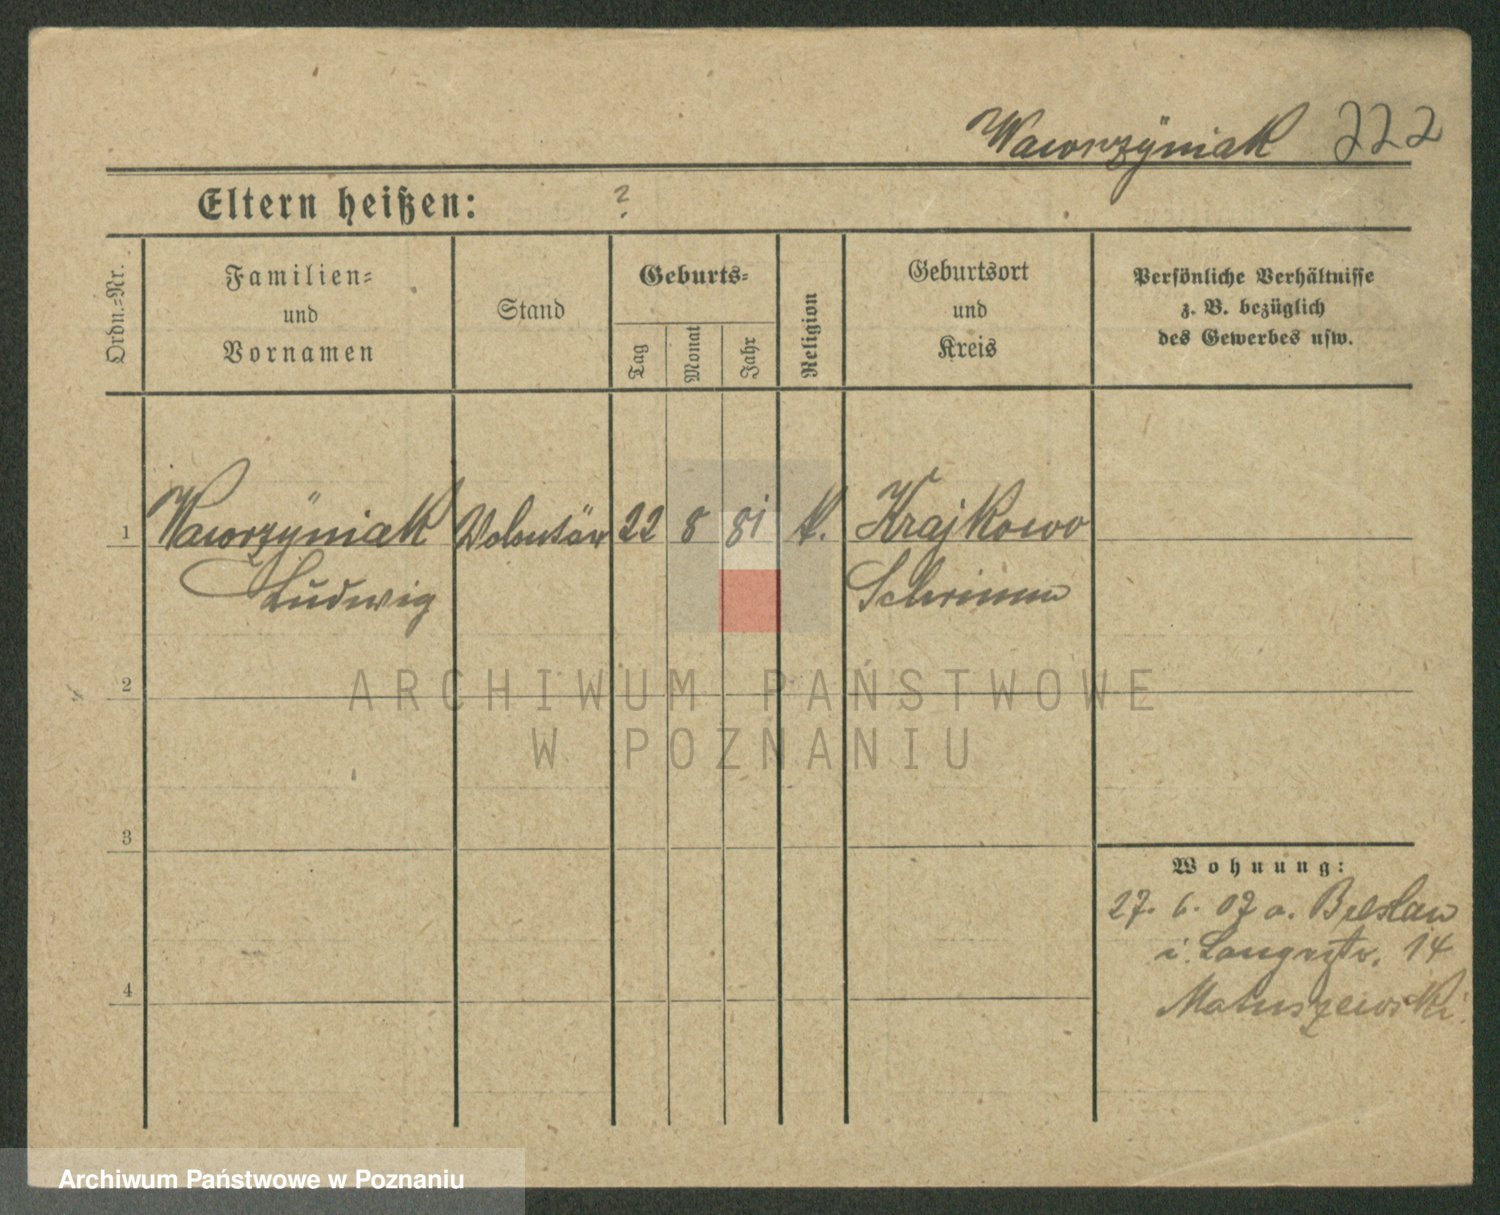 Wawrzÿniak 222
Eltern heißen: ?
Ordn.=Nr.
Familien=
und
Vornamen
Stand
Geburts=
Tag
Monat
Jahr
Religion
Geburtsort
und
Kreis
Persönliche Verhältnisse
z. B. bezüglich
des Gewerbes usw.
1 Wawrzÿniak Volontär 22 8 81 k. Krajkowo
Ludwig Schrimm
2
ARCHIWUM PAŃSTWOWE
W POZNANIU
3
Wohnung:
27. 6. 07 a. Breslau
i. Langestr. 14
4
Matuszewski
Archiwum Państwowe w Poznaniu